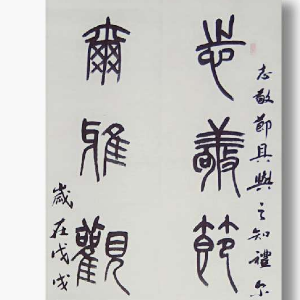 志敬節具與之知禮尔
志節
爾雅觀
歲在戊戌